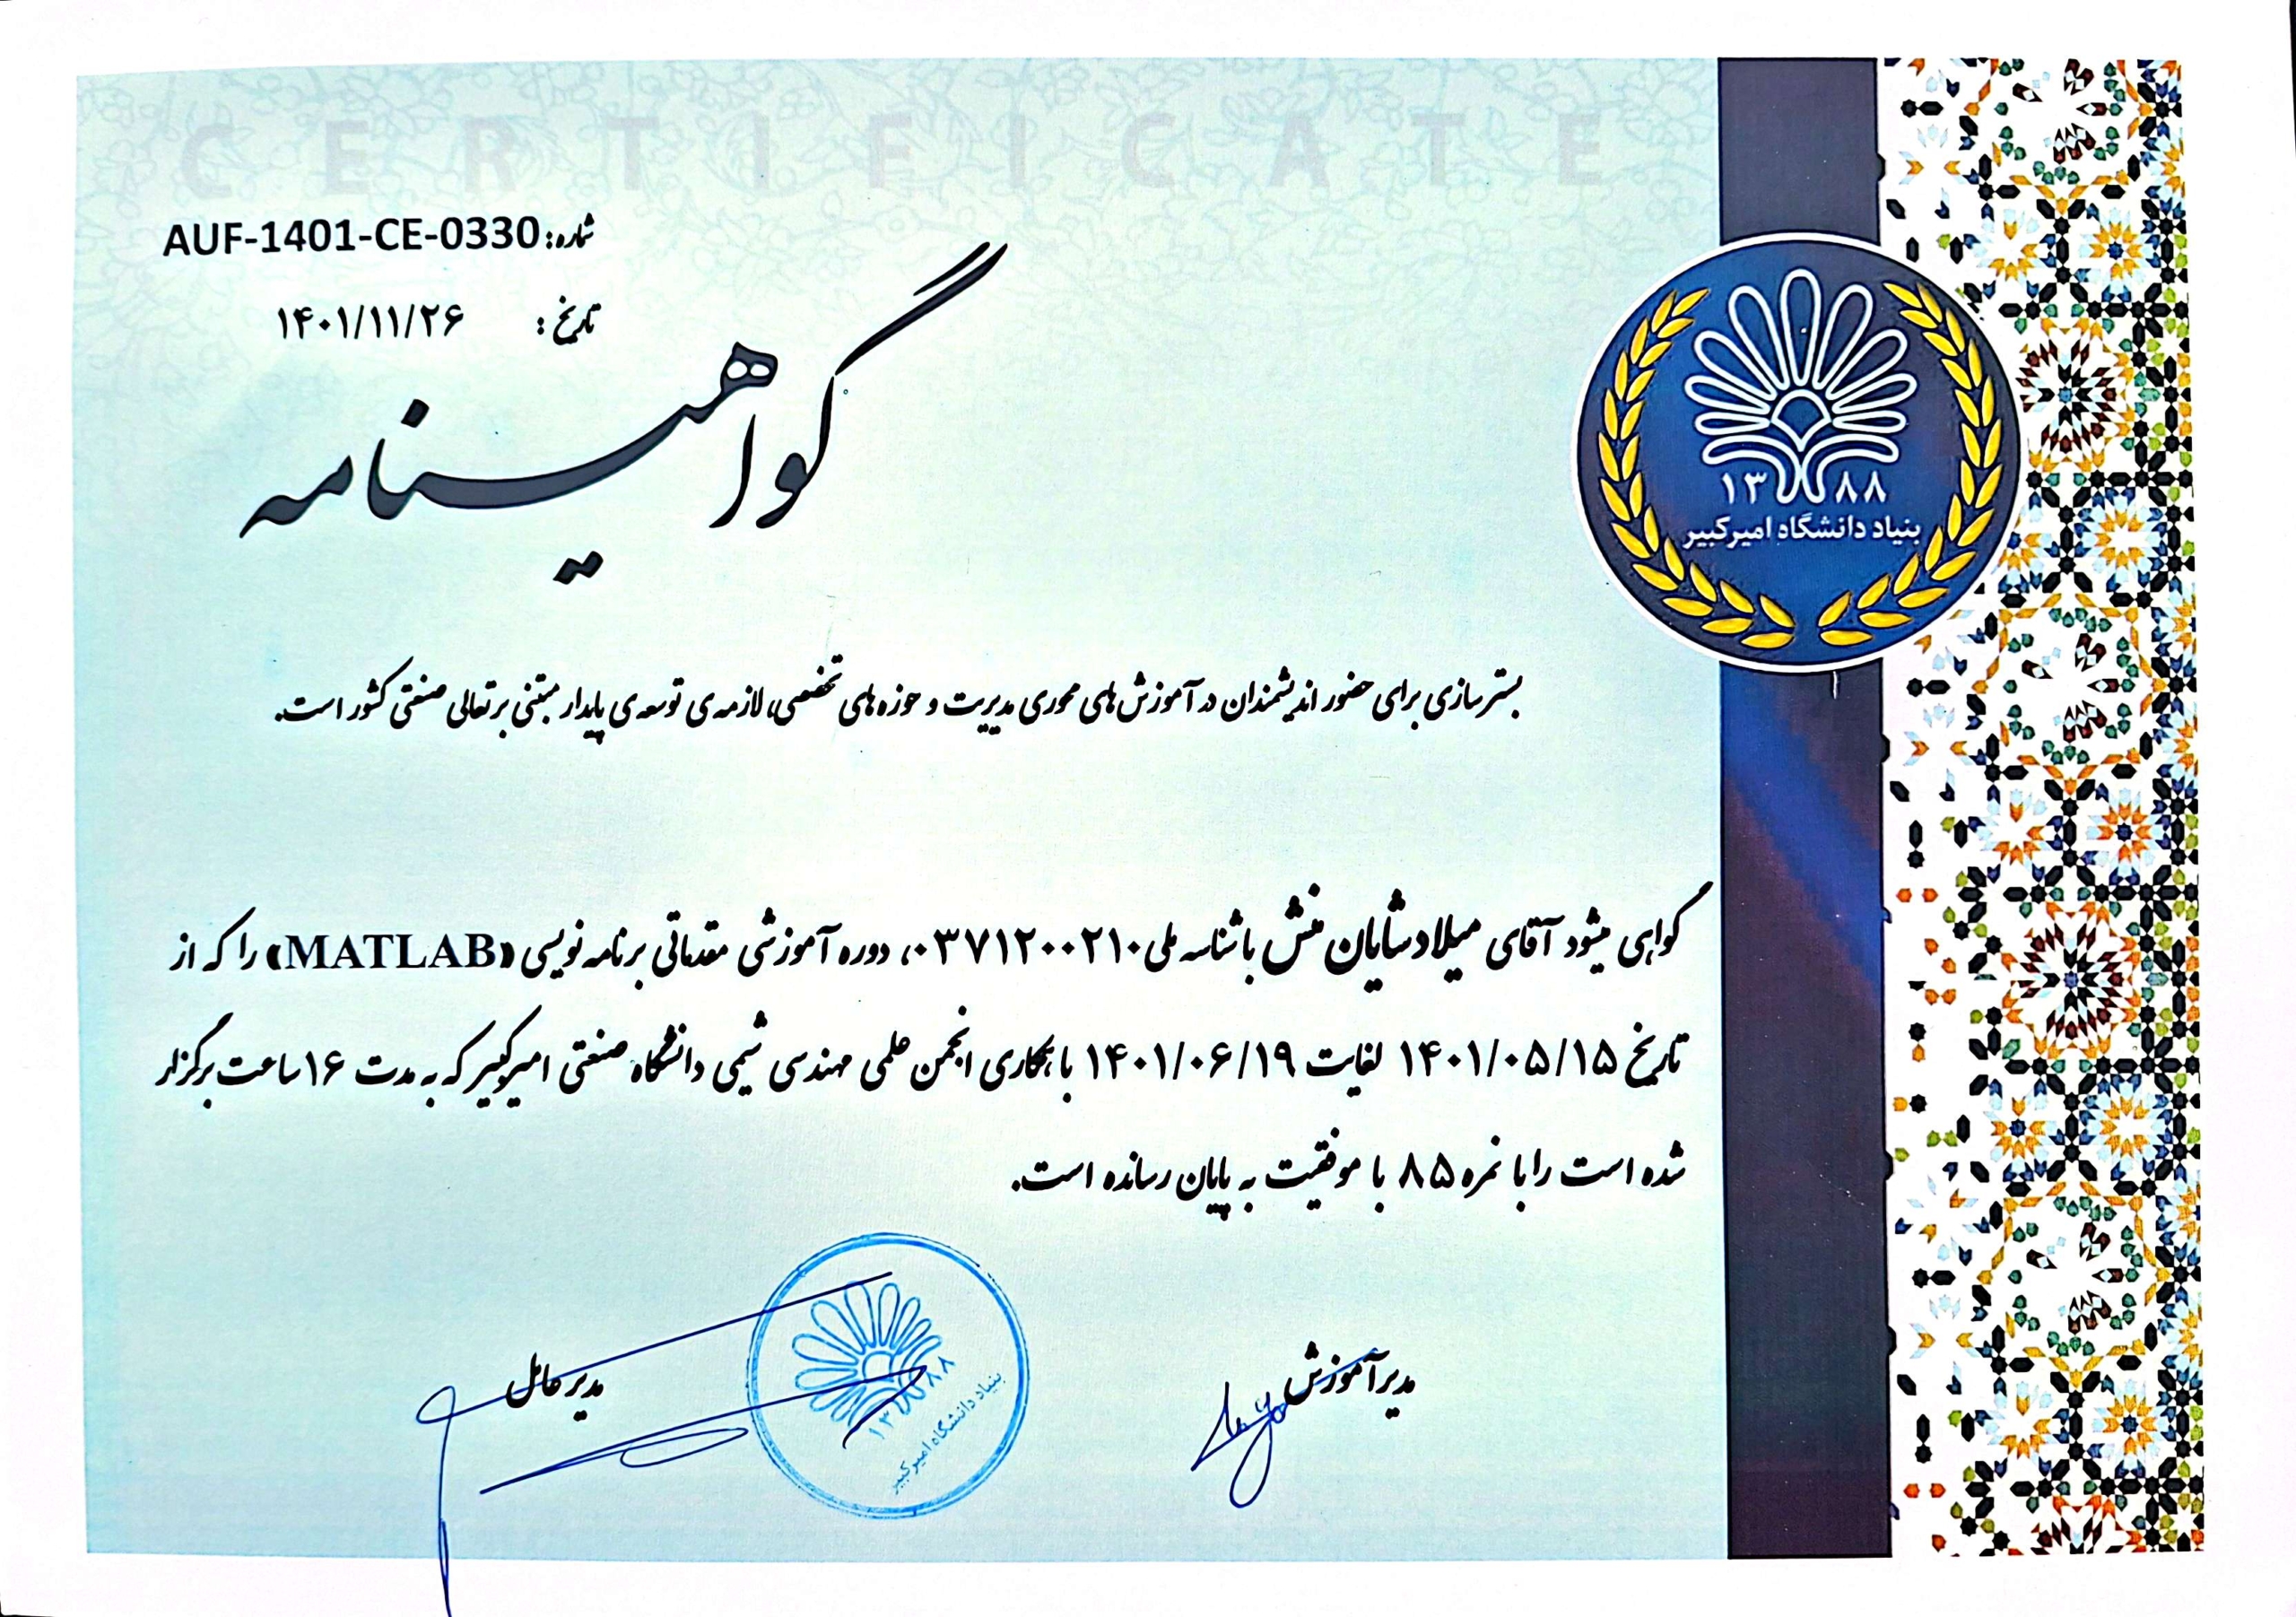 CERTIFICATE
شماره: AUF-1401-CE-0330
تاریخ: ۱۴۰۱/۱۱/۲۶
گواهینامه
۱۳۸۸
بنیاد دانشگاه امیرکبیر
بسترسازی برای حضور اندیشمندان در آموزش های محوری مدیریت و حوزه های تخصصی، لازمه ی توسعه ی پایدار مبتنی بر تعالی صنعتی کشور است.
گواهی میشود آقای میلاد شایان منش با شناسه ملی ۰۳۷۱۲۰۰۲۱۰، دوره آموزشی مقدماتی برنامه نویسی «MATLAB» را که از
تاریخ ۱۴۰۱/۰۵/۱۵ لغایت ۱۴۰۱/۰۶/۱۹ با همکاری انجمن علمی مهندسی شیمی دانشگاه صنعتی امیرکبیر که به مدت ۱۶ ساعت برگزار
شده است را با نمره ۸۵ با موفقیت به پایان رسانده است.
مدیر آموزش
مدیر عامل
۱۳۸۸
بنیاد دانشگاه امیرکبیر